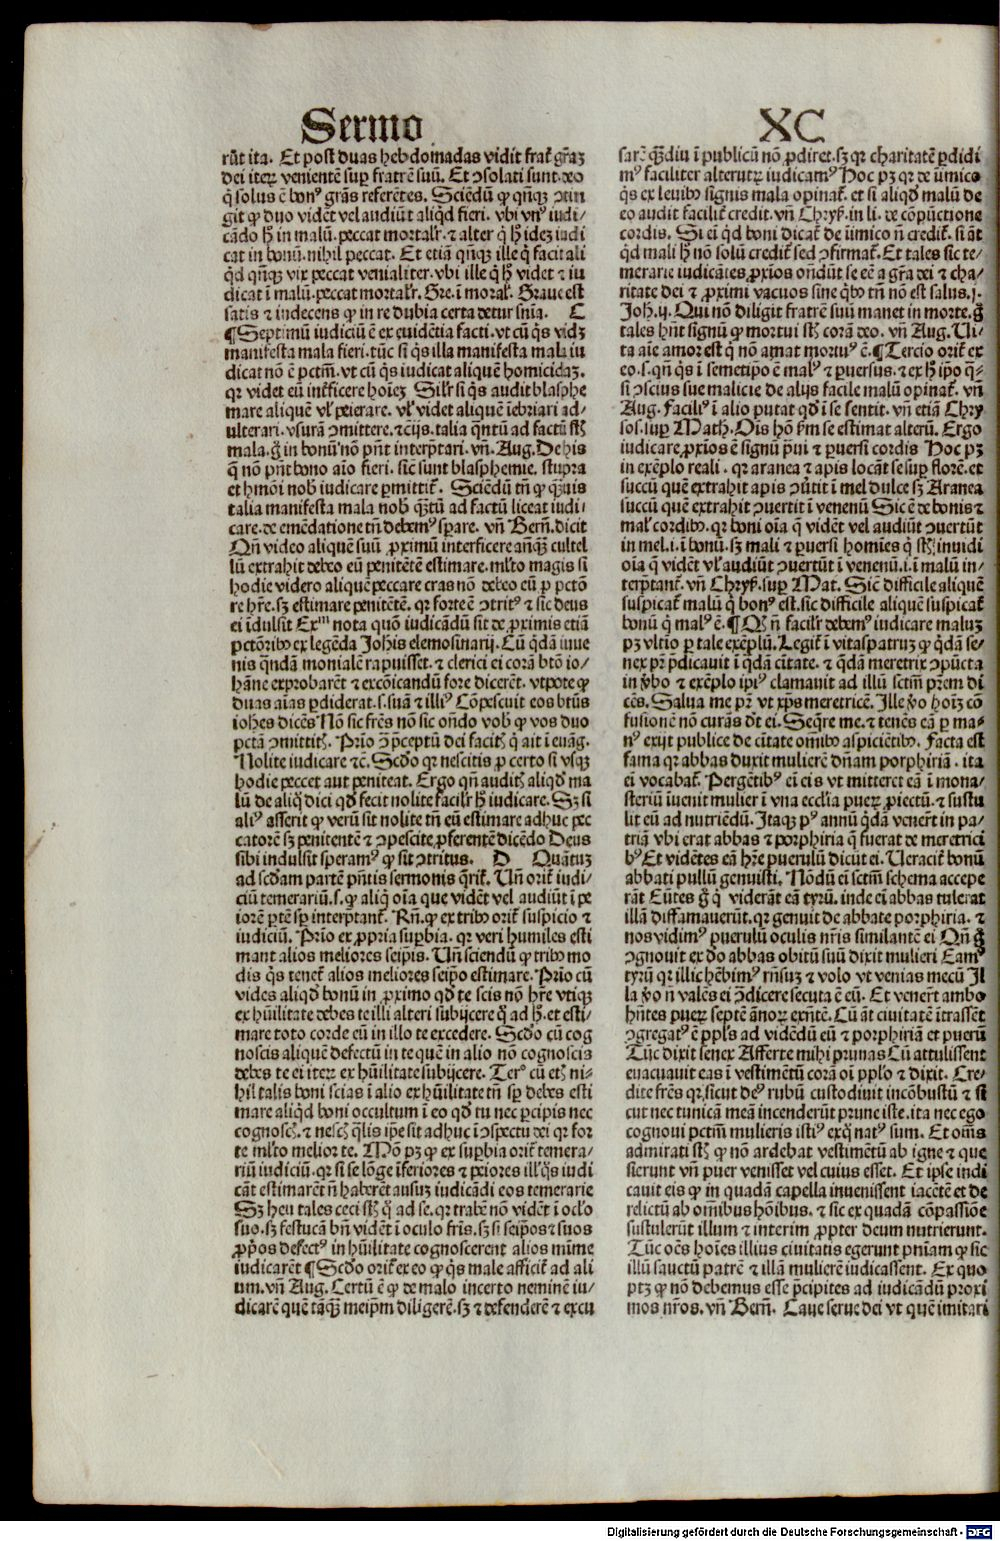 Sermo XC
rūt ita. Et post duas hebdomadas vidit frat̄ gr̄aꝫ
dei iteꝝ venientē suꝑ fratrē suū. Et ꝯsolati sunt deo
q̄ solus ē bonꝰ gr̄as referētes. Sciēdū ꝙ qn̄qꝫ ꝯtin
git ꝙ duo vidēt vel audiūt aliqd̄ fieri. vbi vnꝰ iudi/
cādo h̄ in malū. peccat mortalr̄. ⁊ alter q̄ h̄ ideꝫ iudi
cat in bonū. nihil peccat. Et etiā qn̄qꝫ ille q̄ facit ali
qd̄ qn̄qꝫ vix peccat venialiter. vbi ille q̄ h̄ videt ⁊ iu
dicat ī malū. peccat mortalr̄. Gre. ī moral̄. Graue est
satis ⁊ indecens ꝙ in re dubia certa detur sn̄ia. C
¶Septimū iudiciū ē ex euidētia facti. vt cū q̄s videt
manifesta mala fieri. tūc si q̄s illa manifesta mala iu
dicat nō ē pctm̄. vt cū q̄s iudicat aliquē homicidaꝫ.
qꝛ videt eū intficere hoīeꝫ Sil̄r si q̄s audit blasphe
mare aliquē vl̄ peierare. vl̄ videt aliquē īebriari ad/
ulterari. vsurā ꝯmittere. ⁊cēijs. talia qn̄tū ad factū st̄
mala. ḡ in bonū nō pn̄t interp̄tari. vn̄. Aug. De his
q̄ nō pn̄t bono aīo fieri. sic̄ sunt blasphemie. stupra
et hmōi nob̄ iudicare ꝑmittit̄. Sciēdū tn̄ ꝙ qͣuis
talia manifesta mala nob̄ qͣtū ad factū liceat iudi/
care. de emēdatione tn̄ debemꝰ sꝑare. vn̄ Bern̄. dicit
Qn̄ video aliquē suū ꝓximū interficere an̄qͣ cultel
lū extrahit debeo eū penitētē estimare. ml̄to magis si
hodie videro aliquē peccare cras nō debeo eū ꝑ pctō
re hr̄e. sꝫ estimare penitētē. qꝛ forte ē ꝯtritꝰ ⁊ sic deus
ei īdulsit Exm̄ nota quō iudicādū sit de ꝓximis etiā
pctōribꝰ ex legēda Joh̄is elemosinarij. Cū qdā iuue
nis qn̄dā monialē rapuisset. ⁊ clerici ei corā bt̄o io/
hāne exprobarēt ⁊ excōicandū fore dicerēt. vtpote ꝙ
duas aīas ꝑdiderat. s. suā ⁊ illiꝰ Cōpescuit eos bt̄us
ioh̄es dicēs Nō sic fr̄es nō sic on̄do vob̄ ꝙ vos duo
pctā ꝯmittitꝭ. Prīo ꝯ p̄ceptū dei facitꝭ q̄ ait ī euāg.
Nolite iudicare ⁊c̄. Scd̄o qꝛ nescitis ꝓ certo si vsqꝫ
hodie peccet aut peniteat. Ergo qn̄ auditꝭ aliqd̄ ma
lū de aliq̄ dici qd̄ fecit nolite facil̄r h̄ iudicare. Sꝫ si
aliꝰ asserit ꝙ verū sit nolite tn̄ eū estimare adhuc pec
catorē sꝫ penitentē ⁊ ꝯpescite ꝓferentē dicēdo Deus
sibi indulsit speramꝰ ꝙ sit ꝯtritus. D Quātuꝫ
ad scd̄am partē pn̄tis sermonis qr̄it̄. Vn̄ orit̄ iudi/
ciū temerariū. s. ꝙ aliq̄ oīa que vidēt vel audiūt ī pe
iorē ꝑtē sꝑ interp̄tant̄. Rn̄. ꝙ ex tribꝰ orit̄ suspicio ⁊
iudiciū. Prīo ex ꝓpria suꝑbia. qꝛ veri humiles esti
mant alios meliores seipis. Vn̄ sciendū ꝙ tribꝰ mo
dis q̄s tenet̄ alios meliores seip̄o estimare. Prīo cū
vides aliqd̄ bonū in ꝓximo qd̄ te scis nō hr̄e vtiqꝫ
ex hūilitate debes te illi alteri subijcere q̄ ad h̄. et esti/
mare toto corde eū in illo te excedere. Scd̄o cū cog
noscis aliquē defectū in te quē in alio nō cognoscis
debes te ei iteꝝ ex hūilitate subijcere. Terꝰ cū etꝭ ni/
hil talis boni scias ī alio ex hūilitate tn̄ sꝑ debes esti
mare aliqd̄ boni occultum ī eo qd̄ tu nec ꝑcipis nec
cognoscꝭ. ⁊ nescꝭ qͣlis ip̄e sit adhuc ī ꝯspectu dei qꝛ for
te ml̄to melior te. Mō pꝫ ꝙ ex suꝑbia orit̄ temera/
riū iudiciū. qꝛ si se lōge īferiores ⁊ peiores ill̄ q̄s iudi
cāt estimarēt n̄ haberēt ausuꝫ iudicādi eos temerarie
Sꝫ heu tales ceci st̄ q̄ ad se. qꝛ trabē nō vidēt ī ocl̄o
suo. sꝫ festucā bn̄ vidēt ī oculo fr̄is. sꝫ si seip̄os ⁊ suos
ꝓp̄os defectꝰ in hūilitate cognoscerent alios mīme
iudicarēt ¶Scd̄o orit̄ ex eo ꝙ q̄s male afficit̄ ad ali
um. vn̄ Aug. Certū ē ꝙ de malo incerto neminē iu/
dicarē quē tāqͣ meip̄m diligerē. sꝫ ⁊ defenderē ⁊ excu
sarē qͣdiu ī publicū nō ꝓdiret. sꝫ qꝛ charitatē ꝑdidi
mꝰ faciliter alterutꝝ iudicamꝰ Hoc pꝫ qꝛ de īimico
q̄s ex leuibꝰ signis mala opinat̄. et si aliqd̄ malū de
eo audit facilit̄ credit. vn̄ Chryꝭ. in li. de cōpūctione
cordis. Si ei qd̄ boni dicat̄ de īimico n̄ credit̄. si āt
qd̄ mali h̄ nō solū credit̄ sed ꝯfirmat̄. Et tales sic te/
merarie iudicātes ꝓxīos on̄dūt se eē a gr̄a dei ⁊ cha/
ritate dei ⁊ ꝓximi vacuos sine qͥbꝰ tn̄ nō est salus. j.
Joh̄. ij. Qui nō diligit fratrē suū manet in morte. ḡ
tales hn̄t signū ꝙ mortui st̄ corā deo. vn̄ Aug. Ui/
ta aīe amor est q̄ nō amat mortuꝰ ē. ¶Tercio orit̄ ex
eo. s. qn̄ q̄s ī semetip̄o ē malꝰ ⁊ ꝑuersus. ⁊ ex h̄ ip̄o q̄/
si ꝯscius sue malicie de alijs facile malū opinat̄. vn̄
Aug. Facilꝰ ī alio putat qd̄ ī se sentit. vn̄ etiā Chry
sos. suꝑ Math. Oīs hō ẜm se estimat alterū. Ergo
iudicare ꝓxīos ē signū p̄ui ⁊ ꝑuersi cordis Hoc pꝫ
in exēplo reali. qꝛ aranea ⁊ apis locāt se suꝑ florē. et
succū quē extrahit apis ꝯūtit ī mel dulce sꝫ Aranea
succū quē extrahit ꝯuertit ī venenū Sic ē de bonis ⁊
mal̄ cordibꝰ. qꝛ boni oīa q̄ vidēt vel audiūt ꝯuertūt
in mel. i. ī bonū. sꝫ mali ⁊ ꝑuersi homīes q̄ st̄ inuidi
oīa q̄ vidēt vl̄ audiūt ꝯuertūt ī venenū. i. ī malū in/
terp̄tant̄. vn̄ Chryꝭ. suꝑ Mat. Sic̄ difficile aliquē
suspicat̄ malū q̄ bonꝰ est. sic difficile aliquē suspicat̄
bonū q̄ malꝰ ē. ¶Qꝭ n̄ facil̄r debemꝰ iudicare maluꝫ
pꝫ vltīo ꝑ tale exēplū. Legit̄ ī vitaspatruꝫ ꝙ qͥdā se/
nex pr̄ p̄dicauit ī qͣdā cītate. ⁊ qͣdā meretrix ꝯpūcta
in v̄bo ⁊ exēplo ip̄iꝰ clamauit ad illū sctm̄ pr̄em di
cēs. Salua me pr̄ vt xp̄s meretricē. Ille v̄o hoīꝫ cō
fusionē nō curās dt̄ ei. Seqr̄e me. ⁊ tenēs eā ꝑ ma/
nꝰ exijt publice de cītate om̄ibꝰ aspiciētibꝰ. Facta est
fama qꝛ abbas duxit mulierē dn̄am porphiriā. ita
ei vocabat̄. Pergētibꝰ ei eis vt mitteret eā ī mona/
steriū īuenit mulier ī vna eccl̄ia pueꝝ ꝓiectū. ⁊ sustu
lit eū ad nutriēdū. Itaqꝫ pꝰ annū qͣdā venerūt in pa/
triā vbi erat abbas ⁊ porphiria q̄ fuerat de meretrici
bꝰ Et vidētes eā hr̄e puerulū dicūt ei. Ueracit̄ bonū
abbati pullū genuisti. Nōdū ei sctm̄ schema accepe
rāt Eūtes ḡ q̄ viderāt eā tyrū. inde ei abbas tulerat
illā diffamauerūt. qꝛ genuit de abbate porphiria. ⁊
nos vidimꝰ puerulū oculis nr̄is similantē ei Qn̄ ḡ
ꝯgnouit ex d̄o abbas obitū suū dixit mulieri Eamꝰ
tyrū qꝛ illic hēbimꝰ rn̄suꝫ ⁊ volo vt venias mecū Il
la v̄o n̄ valēs ei ꝯdicere secuta ē eū. Et venerūt ambo
hn̄tes pueꝝ septē ānoꝝ exn̄tē. Cū āt ciuitatē ītrassēt
ꝯgregatꝰ ē pp̄ls ad vidēdū eū ⁊ porphiriā et puerū
Tūc dixit senex Afferte mihi prunas Cū attulissent
euacuauit eas ī vestimētū corā oī pp̄lo ⁊ dixit. Cre/
dite fr̄es qꝛ sicut deꝰ rubū custodiuit incōbustū ⁊ si
cut nec tunicā meā incenderūt prune iste. ita nec ego
cognoui pctm̄ mulieris istiꝰ ex q̄ natꝰ sum. Et om̄s
admirati st̄ ꝙ nō ardebat vestimētū ab igne ⁊ que
sierunt vn̄ puer venisset vel cuius esset. Et ipse indi
cauit eis ꝙ in quadā capella inuenissent iacētē et de
relictū ab om̄ibus hōibus. ⁊ sic ex quadā cōpassiōe
sustulerūt illum ⁊ interim ꝓpter deum nutrierunt.
Tūc oēs hoīes illius ciuitatis egerunt pn̄iam ꝙ sic
illū sanctū patrē ⁊ illā mulierē iudicassent. Ex quo
ptꝫ ꝙ nō debemus esse p̄cipites ad iudicādū proxi
mos nr̄os. vn̄ Bern̄. Caue serue dei vt quē imitari
Digitalisierung gefördert durch die Deutsche Forschungsgemeinschaft - DFG